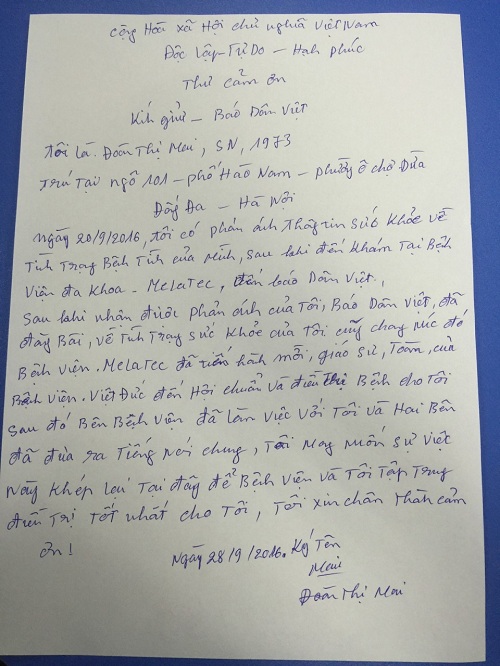 cộng Hòa xã Hội chủ nghĩa Việt Nam
Độc lập - Tự Do - Hạnh phúc
Thư cảm ơn
Kính gửi - Báo Dân Việt
Tôi là. Đoàn Thị Mai, SN, 1973
Trú tại ngõ 101 - phố Hào Nam - phường ô chợ Dừa
Đống Đa - Hà Nội
Ngày 20/9/2016, tôi có phản ánh thông tin sức khỏe về
Tình Trạng Bệnh Tình của mình, sau khi đến khám Tại Bệnh
Viện đa khoa - MeLaTec, đến báo Dân Việt,
Sau khi nhận được phản ánh của Tôi, Báo Dân Việt, đã
đăng Bài, về Tình Trạng sức khỏe của tôi cũng
Bệnh viện. MeLaTec đã tiến hành mời, giáo sư, Toàn, của
Bệnh viện. Việt Đức đến Hội chuẩn và điều Trị Bệnh cho Tôi
Sau đó Bên Bệnh viện đã làm việc với Tôi và Hai Bên
đã đưa ra Tiếng Nói chung, Tôi May muốn sự việc
Này khép lại Tại đây để Bệnh viện và Tôi Tập Trung
điều Trị Tốt nhất cho Tôi, Tôi xin chân Thành cảm
ơn!
Ngày 28/9/2016. Ký Tên
Mai
Đoàn Thị Mai